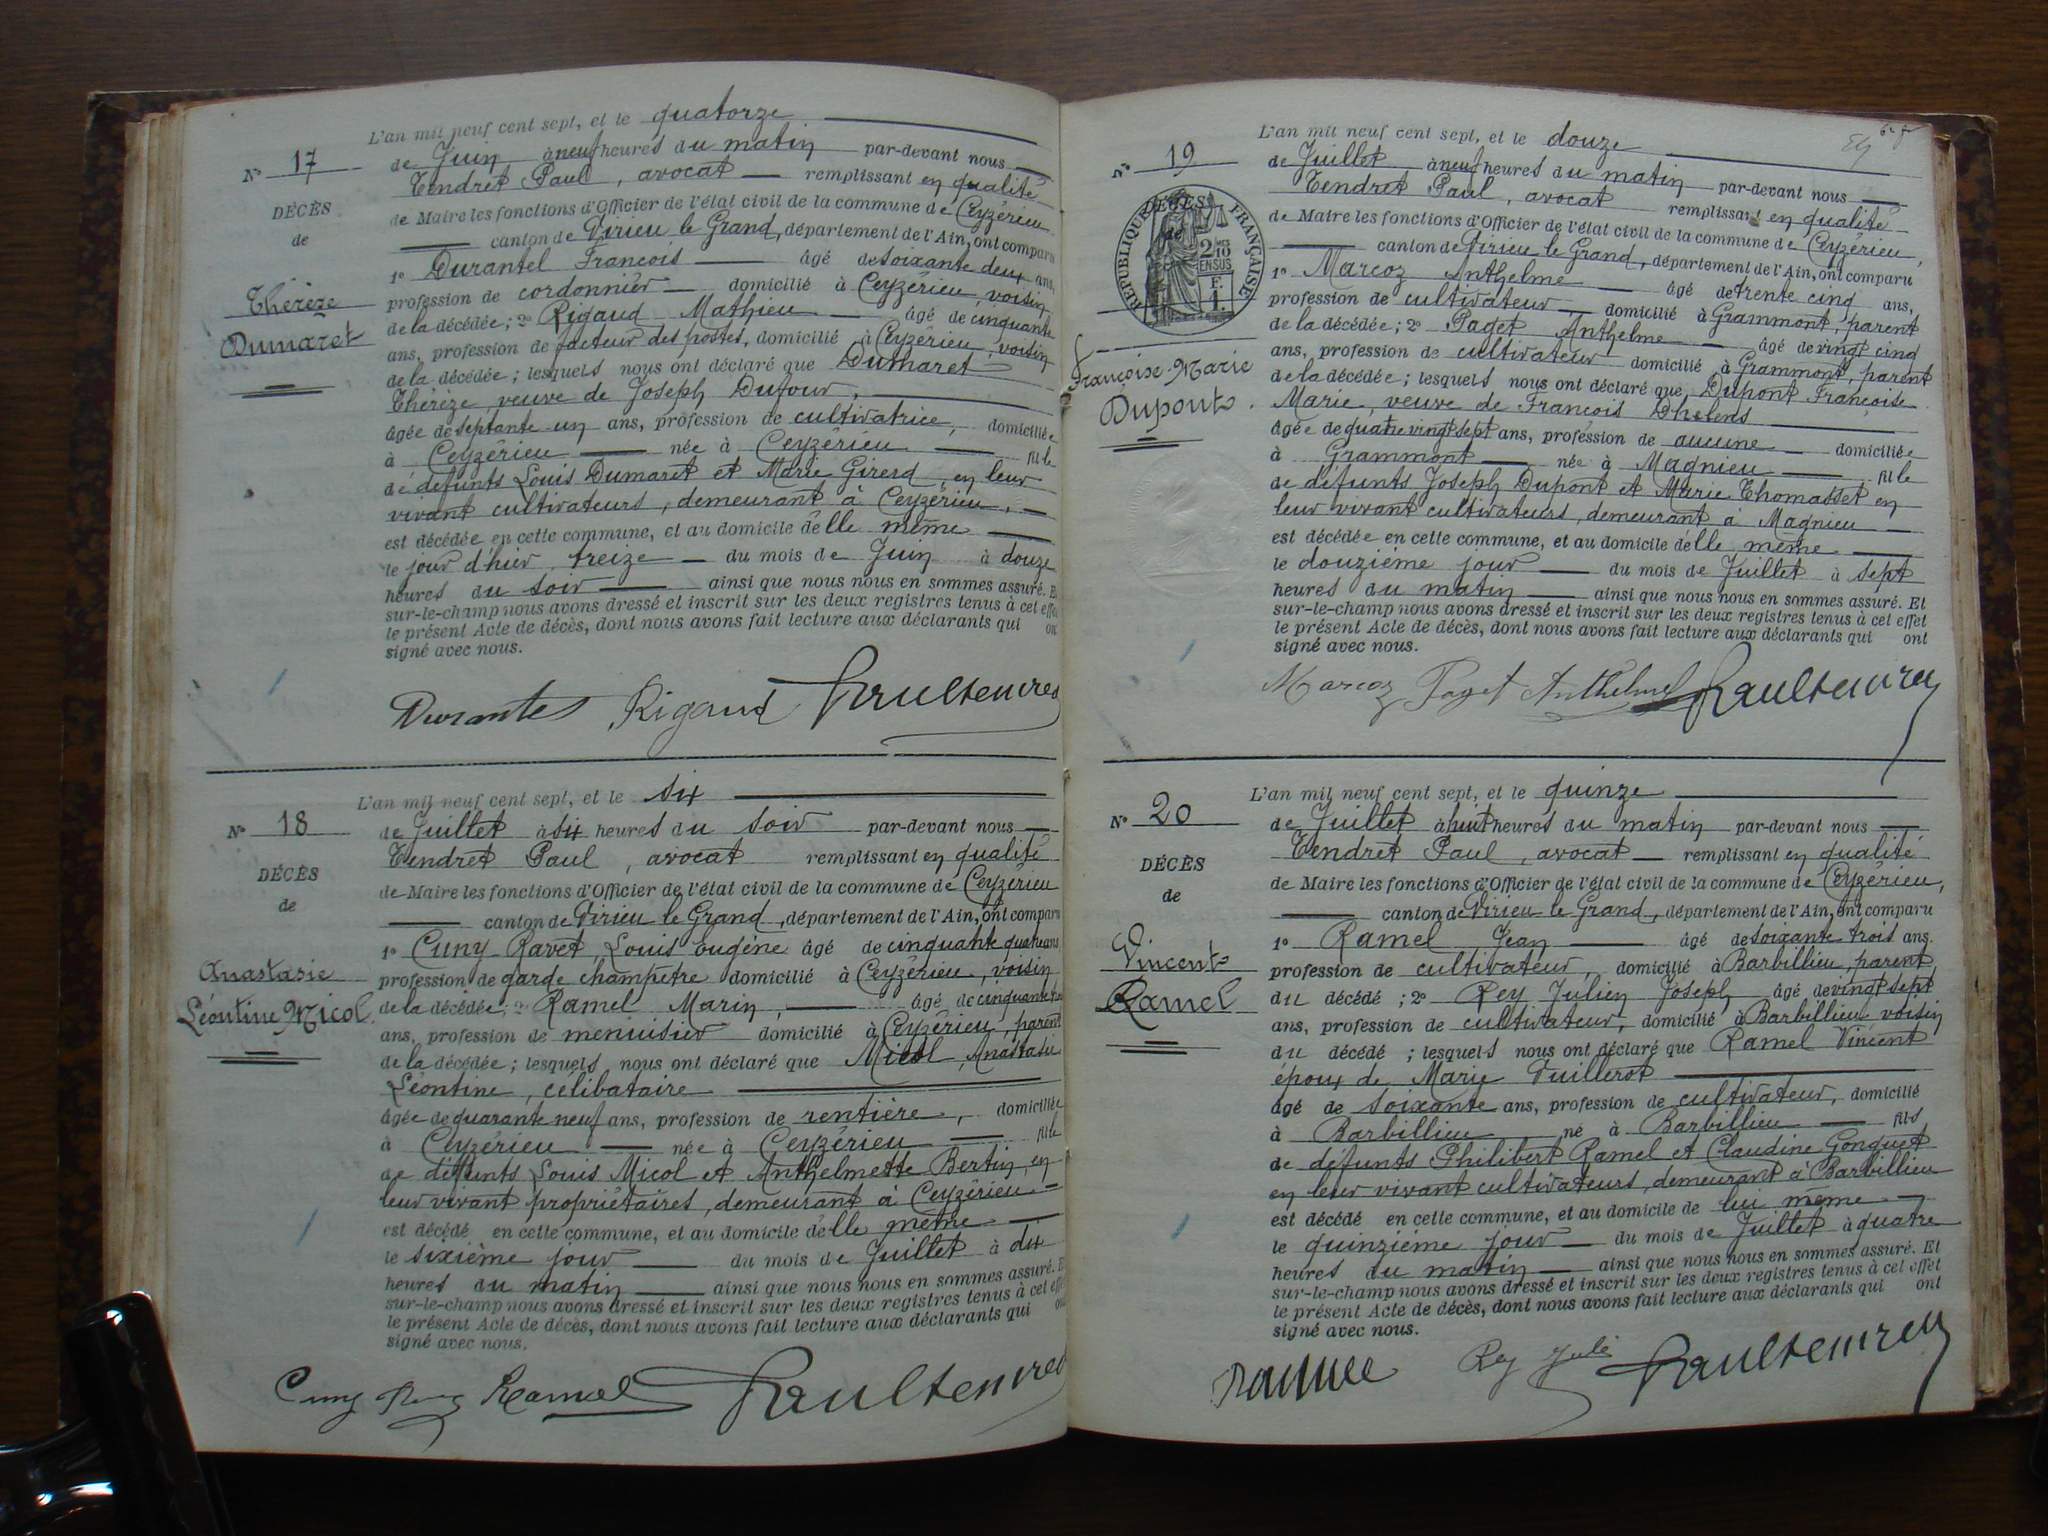 L'an mil neuf cent sept, et le quatorze
N° 17
de Juin, à neuf heures du matin par-devant nous
Tendret Paul, avocat remplissant en qualité
DÉCÈS
de Maire les fonctions d'Officier de l'état civil de la commune de Ceyzérieu
de
canton de Virieu le Grand, département de l'Ain, ont comparu
1° Durantel François âgé de soixante deux ans,
Thérèze
profession de cordonnier domicilié à Ceyzérieu, voisin
Dumaret
de la décédée; 2° Rigaud Mathieu âgé de cinquante
ans, profession de facteur des postes, domicilié à Ceyzérieu, voisin
de la décédée; lesquels nous ont déclaré que Dumaret
Thérèze, veuve de Joseph Dufour,
âgée de septante-un ans, profession de cultivatrice, domiciliée
à Ceyzérieu née à Ceyzérieu fille
de défunts Louis Dumaret et Marie Girerd en leur
vivant cultivateurs, demeurant à Ceyzérieu,
est décédée en cette commune, et au domicile d'elle même
le jour d'hier treize du mois de Juin à douze
heures du soir ainsi que nous nous en sommes assuré. Et
sur-le-champ nous avons dressé et inscrit sur les deux registres tenus à cet effet
le présent Acte de décès, dont nous avons fait lecture aux déclarants qui ont
signé avec nous.
Durantel Rigaud Paul Tendret
L'an mil neuf cent sept, et le six
N° 18
de Juillet à six heures du soir par-devant nous
Tendret Paul, avocat remplissant en qualité
DÉCÈS
de Maire les fonctions d'Officier de l'état civil de la commune de Ceyzérieu
de
canton de Virieu le Grand, département de l'Ain, ont comparu
1° Cuny Ravet Louis Eugène âgé de cinquante quatre ans
Anastasie
profession de garde champêtre domicilié à Ceyzérieu, voisin
Léontine Micol
de la décédée; 2° Ramel Marin, âgé de cinquante
ans, profession de menuisier domicilié à Ceyzérieu, parent
de la décédée; lesquels nous ont déclaré que Micol, Anastasie
Léontine, célibataire
âgée de quarante neuf ans, profession de rentière, domiciliée
à Ceyzérieu née à Ceyzérieu fille
de défunts Louis Micol et Anthelmette Bertin, en
leur vivant propriétaires, demeurant à Ceyzérieu
est décédé en cette commune, et au domicile d'elle même
le sixième jour du mois de Juillet à dix
heures du matin ainsi que nous nous en sommes assuré. Et
sur-le-champ nous avons dressé et inscrit sur les deux registres tenus à cet effet
le présent Acte de décès, dont nous avons fait lecture aux déclarants qui ont
signé avec nous.
Cuny Ramel Paul Tendret
L'an mil neuf cent sept, et le douze
N° 19
de Juillet à neuf heures du matin par-devant nous
Tendret Paul, avocat remplissant en qualité
DÉCÈS
de
RÉPUBLIQUE FRANÇAISE
2/10
EN SUS
F.
1
de Maire les fonctions d'Officier de l'état civil de la commune de Ceyzérieu,
canton de Virieu le Grand, département de l'Ain, ont comparu
1° Marcoz Anthelme âgé de trente cinq ans,
profession de cultivateur domicilié à Grammont, parent
de la décédée; 2° Paget Anthelme âgé de vingt cinq
Françoise-Marie
Dupont
ans, profession de cultivateur domicilié à Grammont, parent
de la décédée; lesquels nous ont déclaré que Dupont Françoise
Marie, veuve de François Dhelens
âgée de quatre vingt sept ans, profession de aucune domiciliée
à Grammont née à Magnieu fille
de défunts Joseph Dupont et Marie Thomasset en
leur vivant cultivateurs, demeurant à Magnieu
est décédée en cette commune, et au domicile d'elle même
le douzième jour du mois de Juillet à sept
heures du matin ainsi que nous nous en sommes assuré. Et
sur-le-champ nous avons dressé et inscrit sur les deux registres tenus à cet effet
le présent Acte de décès, dont nous avons fait lecture aux déclarants qui ont
signé avec nous.
Marcoz Paget Anthelme Paul Tendret
L'an mil neuf cent sept, et le quinze
N° 20
de Juillet à huit heures du matin par-devant nous
Tendret Paul, avocat remplissant en qualité
DÉCÈS
de Maire les fonctions d'Officier de l'état civil de la commune de Ceyzérieu,
de
canton de Virieu le Grand, département de l'Ain, ont comparu
1° Ramel Jean âgé de soixante trois ans.
Vincent
profession de cultivateur, domicilié à Barbillieu, parent
Ramel
du décédé; 2° Rey Julien Joseph âgé de vingt sept
ans, profession de cultivateur, domicilié à Barbillieu voisin
du décédé; lesquels nous ont déclaré que Ramel Vincent
époux de Marie Vuillerot
âgé de soixante ans, profession de cultivateur, domicilié
à Barbillieu né à Barbillieu fils
de défunts Philibert Ramel et Claudine Gonguet
en leur vivant cultivateurs, demeurant à Barbillieu
est décédé en cette commune, et au domicile de lui même
le quinzième jour du mois de Juillet à quatre
heures du matin ainsi que nous nous en sommes assuré. Et
sur-le-champ nous avons dressé et inscrit sur les deux registres tenus à cet effet
le présent Acte de décès, dont nous avons fait lecture aux déclarants qui ont
signé avec nous.
Rey Paul Tendret